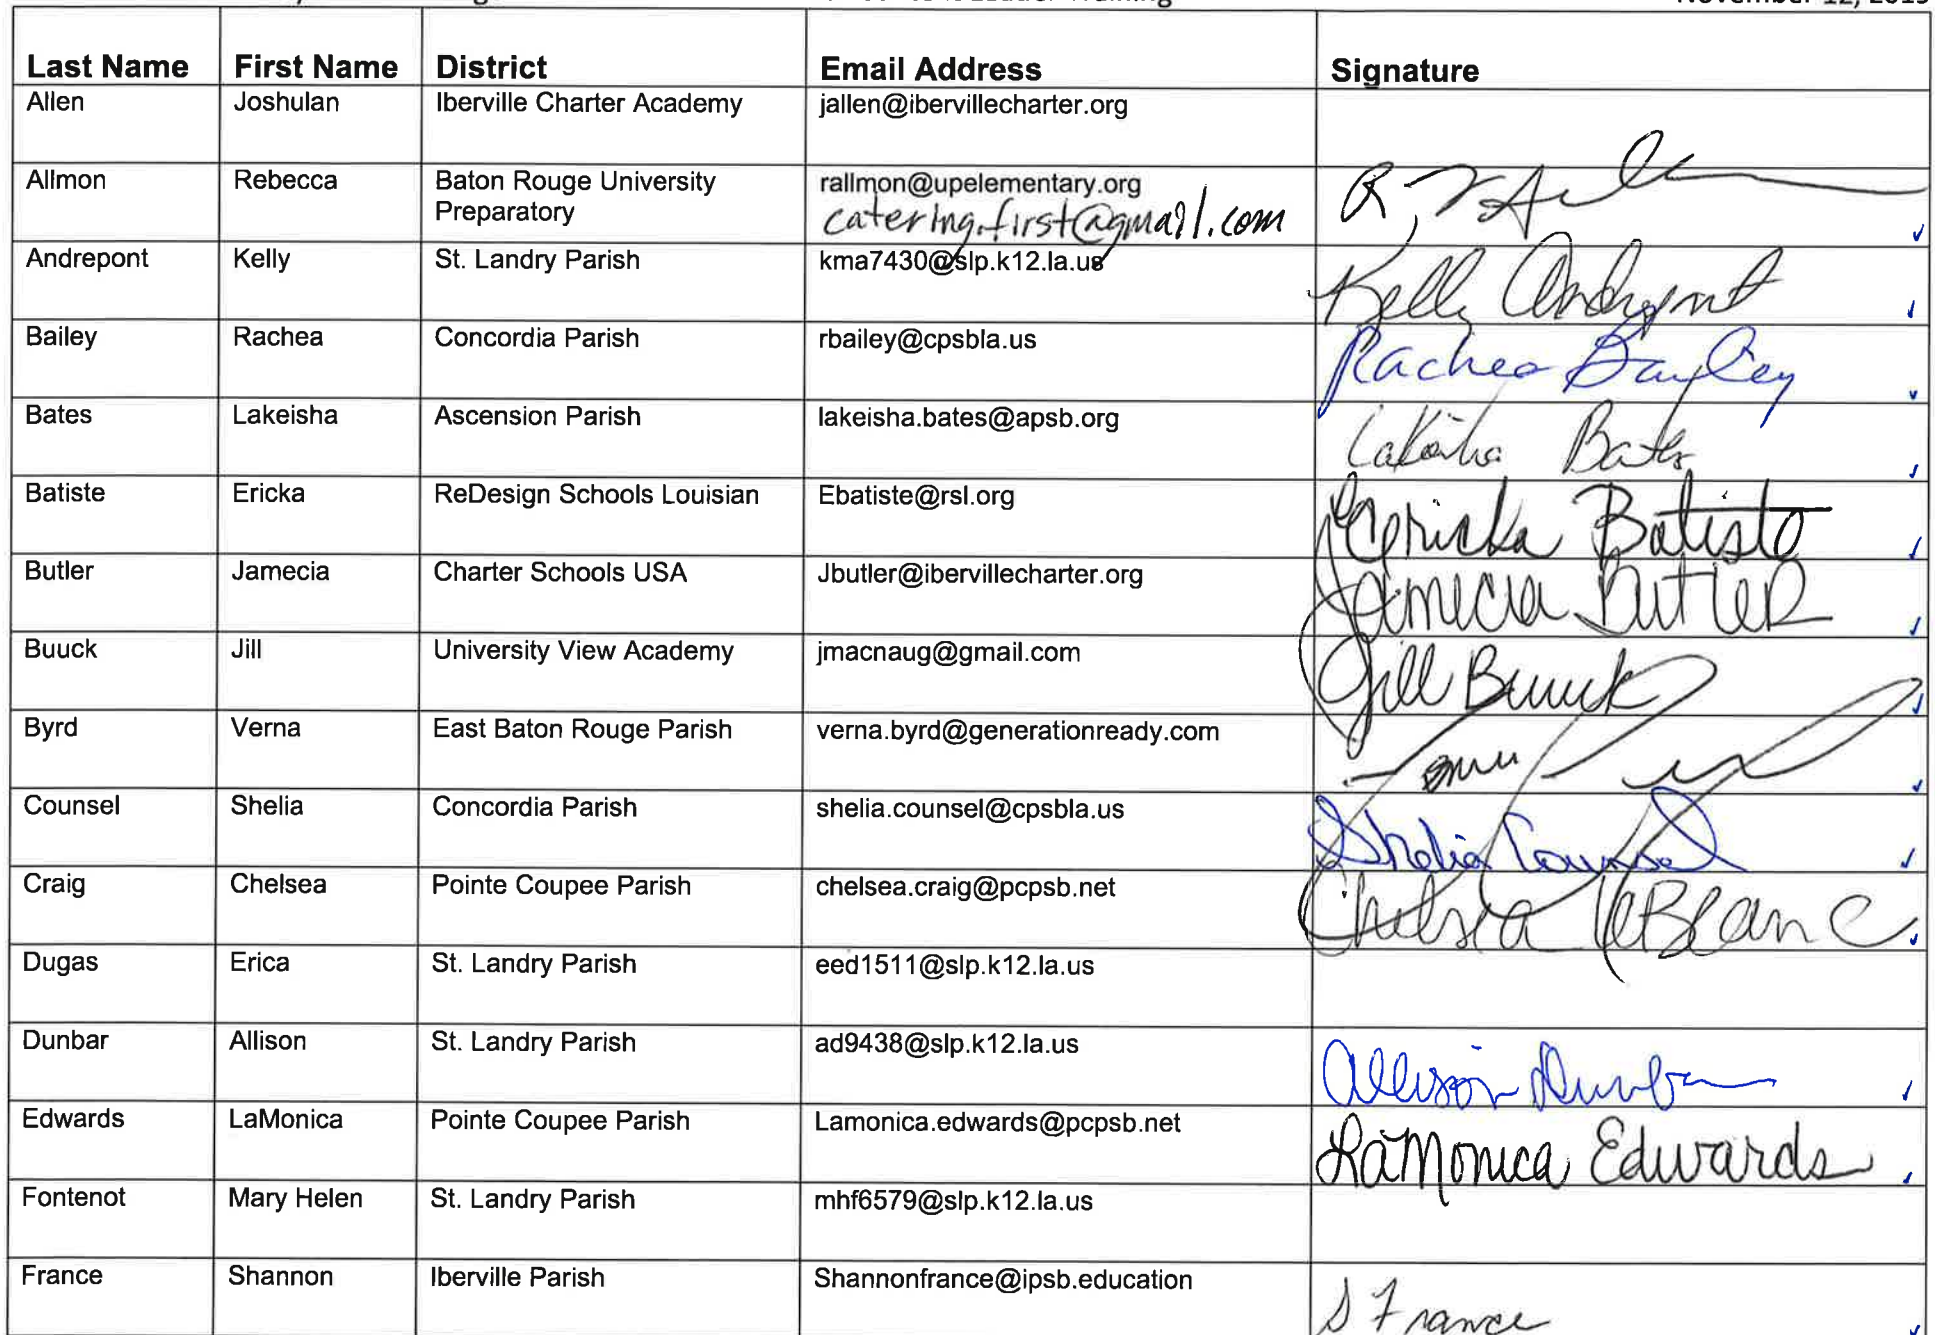 Leader Training November 12, 2019
Last Name First Name District Email Address Signature
Allen Joshulan Iberville Charter Academy jallen@ibervillecharter.org
Allmon Rebecca Baton Rouge University rallmon@upelementary.org
Preparatory catering.first@gmail.com
Andrepont Kelly St. Landry Parish kma7430@slp.k12.la.us Kelly Andrepont
Bailey Rachea Concordia Parish rbailey@cpsbla.us Rachea Bailey
Bates Lakeisha Ascension Parish lakeisha.bates@apsb.org Lakeisha Bates
Batiste Ericka ReDesign Schools Louisian Ebatiste@rsl.org Ericka Batiste
Butler Jamecia Charter Schools USA Jbutler@ibervillecharter.org Jamecia Butler
Buuck Jill University View Academy jmacnaug@gmail.com Jill Buuck
Byrd Verna East Baton Rouge Parish verna.byrd@generationready.com
Counsel Shelia Concordia Parish shelia.counsel@cpsbla.us Shelia Counsel
Craig Chelsea Pointe Coupee Parish chelsea.craig@pcpsb.net Chelsea LeBlanc
Dugas Erica St. Landry Parish eed1511@slp.k12.la.us
Dunbar Allison St. Landry Parish ad9438@slp.k12.la.us Allison Dunbar
Edwards LaMonica Pointe Coupee Parish Lamonica.edwards@pcpsb.net LaMonica Edwards
Fontenot Mary Helen St. Landry Parish mhf6579@slp.k12.la.us
France Shannon Iberville Parish Shannonfrance@ipsb.education S France